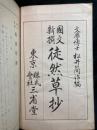 文學博士 松井簡治編
國文新撰
徒然草抄
東京
株式會社
三省堂